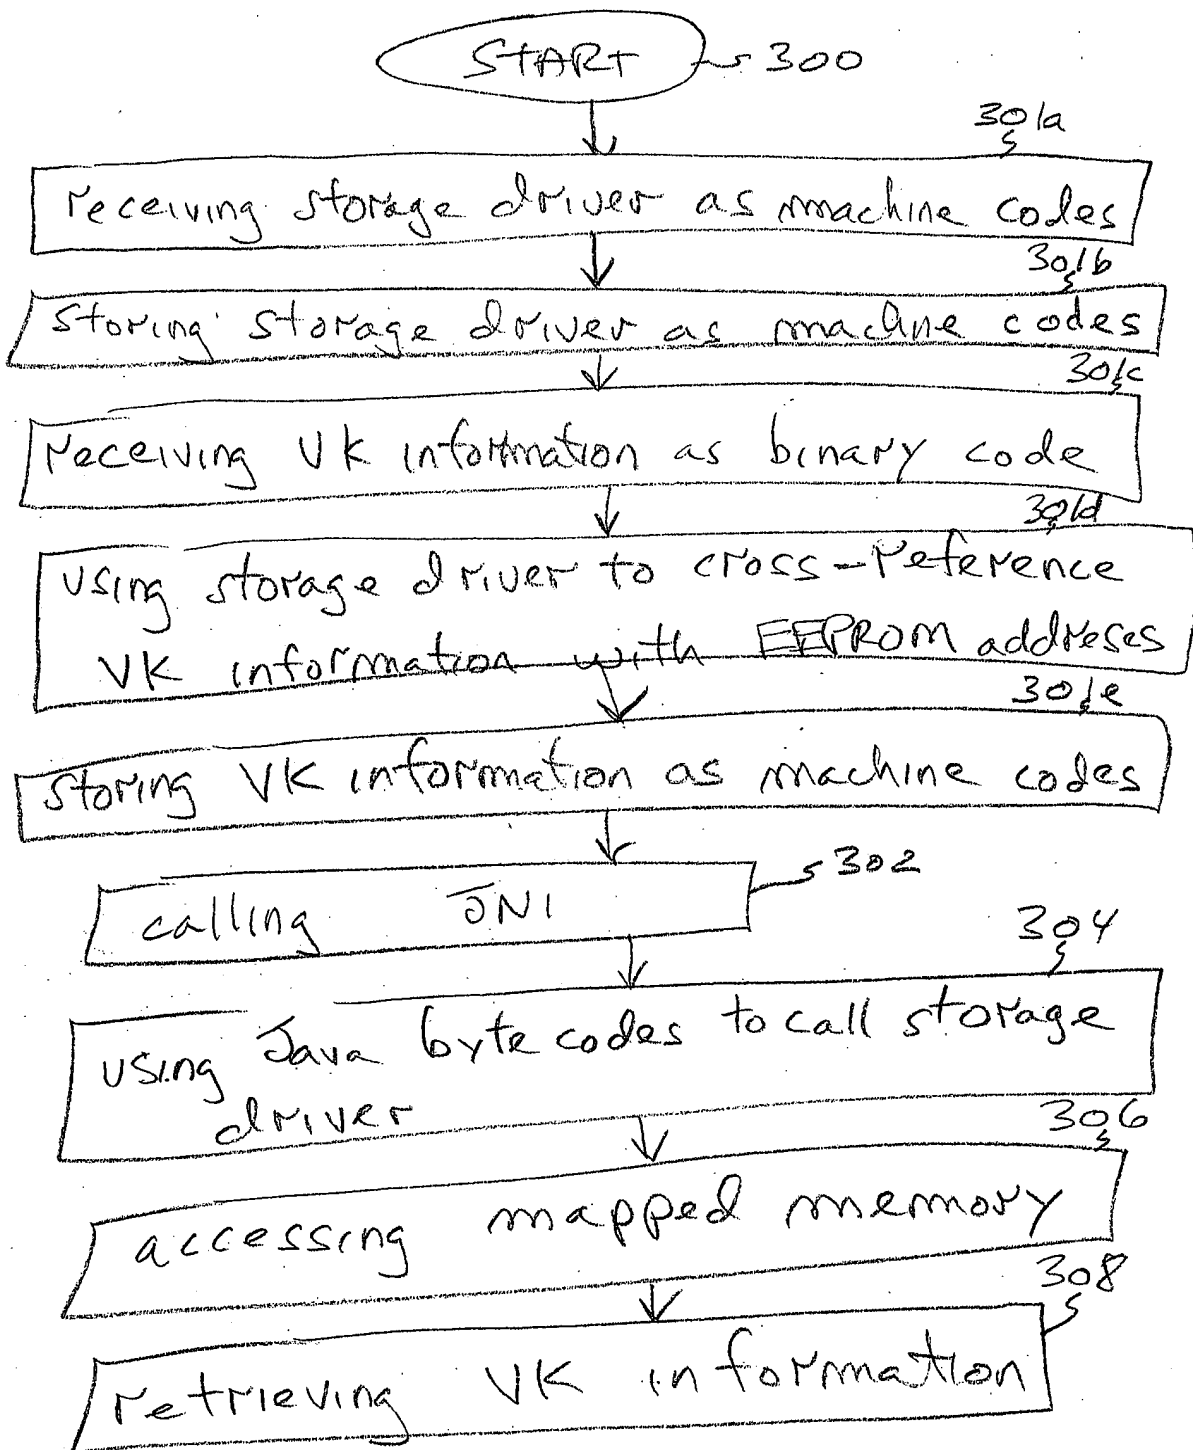 START 300
301a
receiving storage driver as machine codes
301b
storing storage driver as machine codes
301c
receiving VK information as binary code
301d
using storage driver to cross-reference
VK information with EEPROM addreses
301e
storing VK information as machine codes
302
calling JNI
304
using Java byte codes to call storage
driver
306
accessing mapped memory
308
retrieving VK information